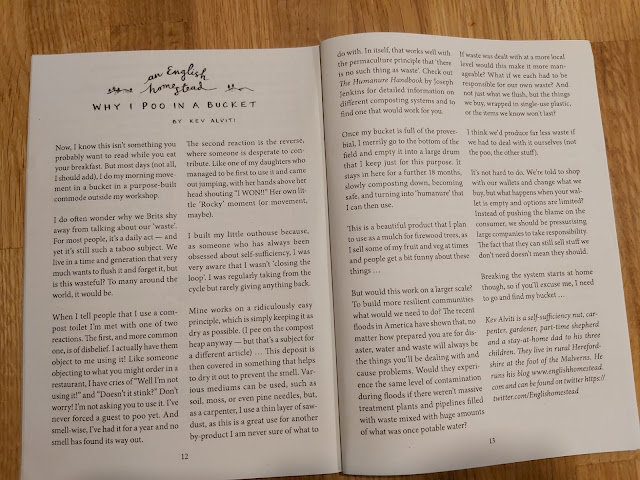 an English
homestead
WHY I POO IN A BUCKET
BY KEV ALVITI
Now, I know this isn't something you
probably want to read while you eat
your breakfast. But most days (not all,
I should add), I do my morning move-
ment in a bucket in a purpose-built
commode outside my workshop.
I do often wonder why we Brits shy
away from talking about our 'waste'.
For most people, it's a daily act — and
yet it's still such a taboo subject. We
live in a time and generation that very
much wants to flush it and forget it, but
is this wasteful? To many around the
world, it would be.
When I tell people that I use a com-
post toilet I'm met with one of two
reactions. The first, and more common
one, is of disbelief. I actually have them
object to me using it! Like someone
objecting to what you might order in a
restaurant, I have cries of "Well I'm not
using it!" and "Doesn't it stink?" Don't
worry! I'm not asking you to use it. I've
never forced a guest to poo yet. And
smell-wise, I've had it for a year and no
smell has found its way out.
The second reaction is the reverse,
where someone is desperate to con-
tribute. Like one of my daughters who
managed to be first to use it and came
out jumping, with her hands above her
head shouting "I WON!!" Her own lit-
tle 'Rocky' moment (or movement,
maybe).
I built my little outhouse because,
as someone who has always been
obsessed about self-sufficiency, I was
very aware that I wasn't 'closing the
loop'. I was regularly taking from the
cycle but rarely giving anything back.
Mine works on a ridiculously easy
principle, which is simply keeping it as
dry as possible. (I pee on the compost
heap anyway — but that's a subject for
a different article) … This deposit is
then covered in something that helps
to dry it out to prevent the smell. Var-
ious mediums can be used, such as
soil, moss, or even pine needles, but,
as a carpenter, I use a thin layer of saw-
dust, as this is a great use for another
by-product I am never sure of what to
12
do with. In itself, that works well with
the permaculture principle that 'there
is no such thing as waste'. Check out
The Humanure Handbook by Joseph
Jenkins for detailed information on
different composting systems and to
find one that would work for you.
Once my bucket is full of the prover-
bial, I merrily go to the bottom of the
field and empty it into a large drum
that I keep just for this purpose. It
stays in here for a further 18 months,
slowly composting down, becoming
safe, and turning into 'humanure' that
I can then use.
This is a beautiful product that I plan
to use as a mulch for firewood trees, as
I sell some of my fruit and veg at times
and people get a bit funny about these
things …
But would this work on a larger scale?
To build more resilient communities
what would we need to do? The recent
floods in America have shown that, no
matter how prepared you are for dis-
aster, water and waste will always be
the things you'll be dealing with and
cause problems. Would they experi-
ence the same level of contamination
during floods if there weren't massive
treatment plants and pipelines filled
with waste mixed with huge amounts
of what was once potable water?
If waste was dealt with at a more local
level would this make it more man-
ageable? What if we each had to be
responsible for our own waste? And
not just what we flush, but the things
we buy, wrapped in single-use plastic,
or the items we know won't last?
I think we'd produce far less waste if
we had to deal with it ourselves (not
the poo, the other stuff).
It's not hard to do. We're told to shop
with our wallets and change what we
buy, but what happens when your wal-
let is empty and options are limited?
Instead of pushing the blame on the
consumer, we should be pressurising
large companies to take responsibility.
The fact that they can still sell stuff we
don't need doesn't mean they should.
Breaking the system starts at home
though, so if you'll excuse me, I need
to go and find my bucket …
Kev Alviti is a self-sufficiency nut, car-
penter, gardener, part-time shepherd
and a stay-at-home dad to his three
children. They live in rural Hereford-
shire at the foot of the Malverns. He
runs his blog www.englishhomestead.
com and can be found on twitter https://
twitter.com/Englishomestead
13